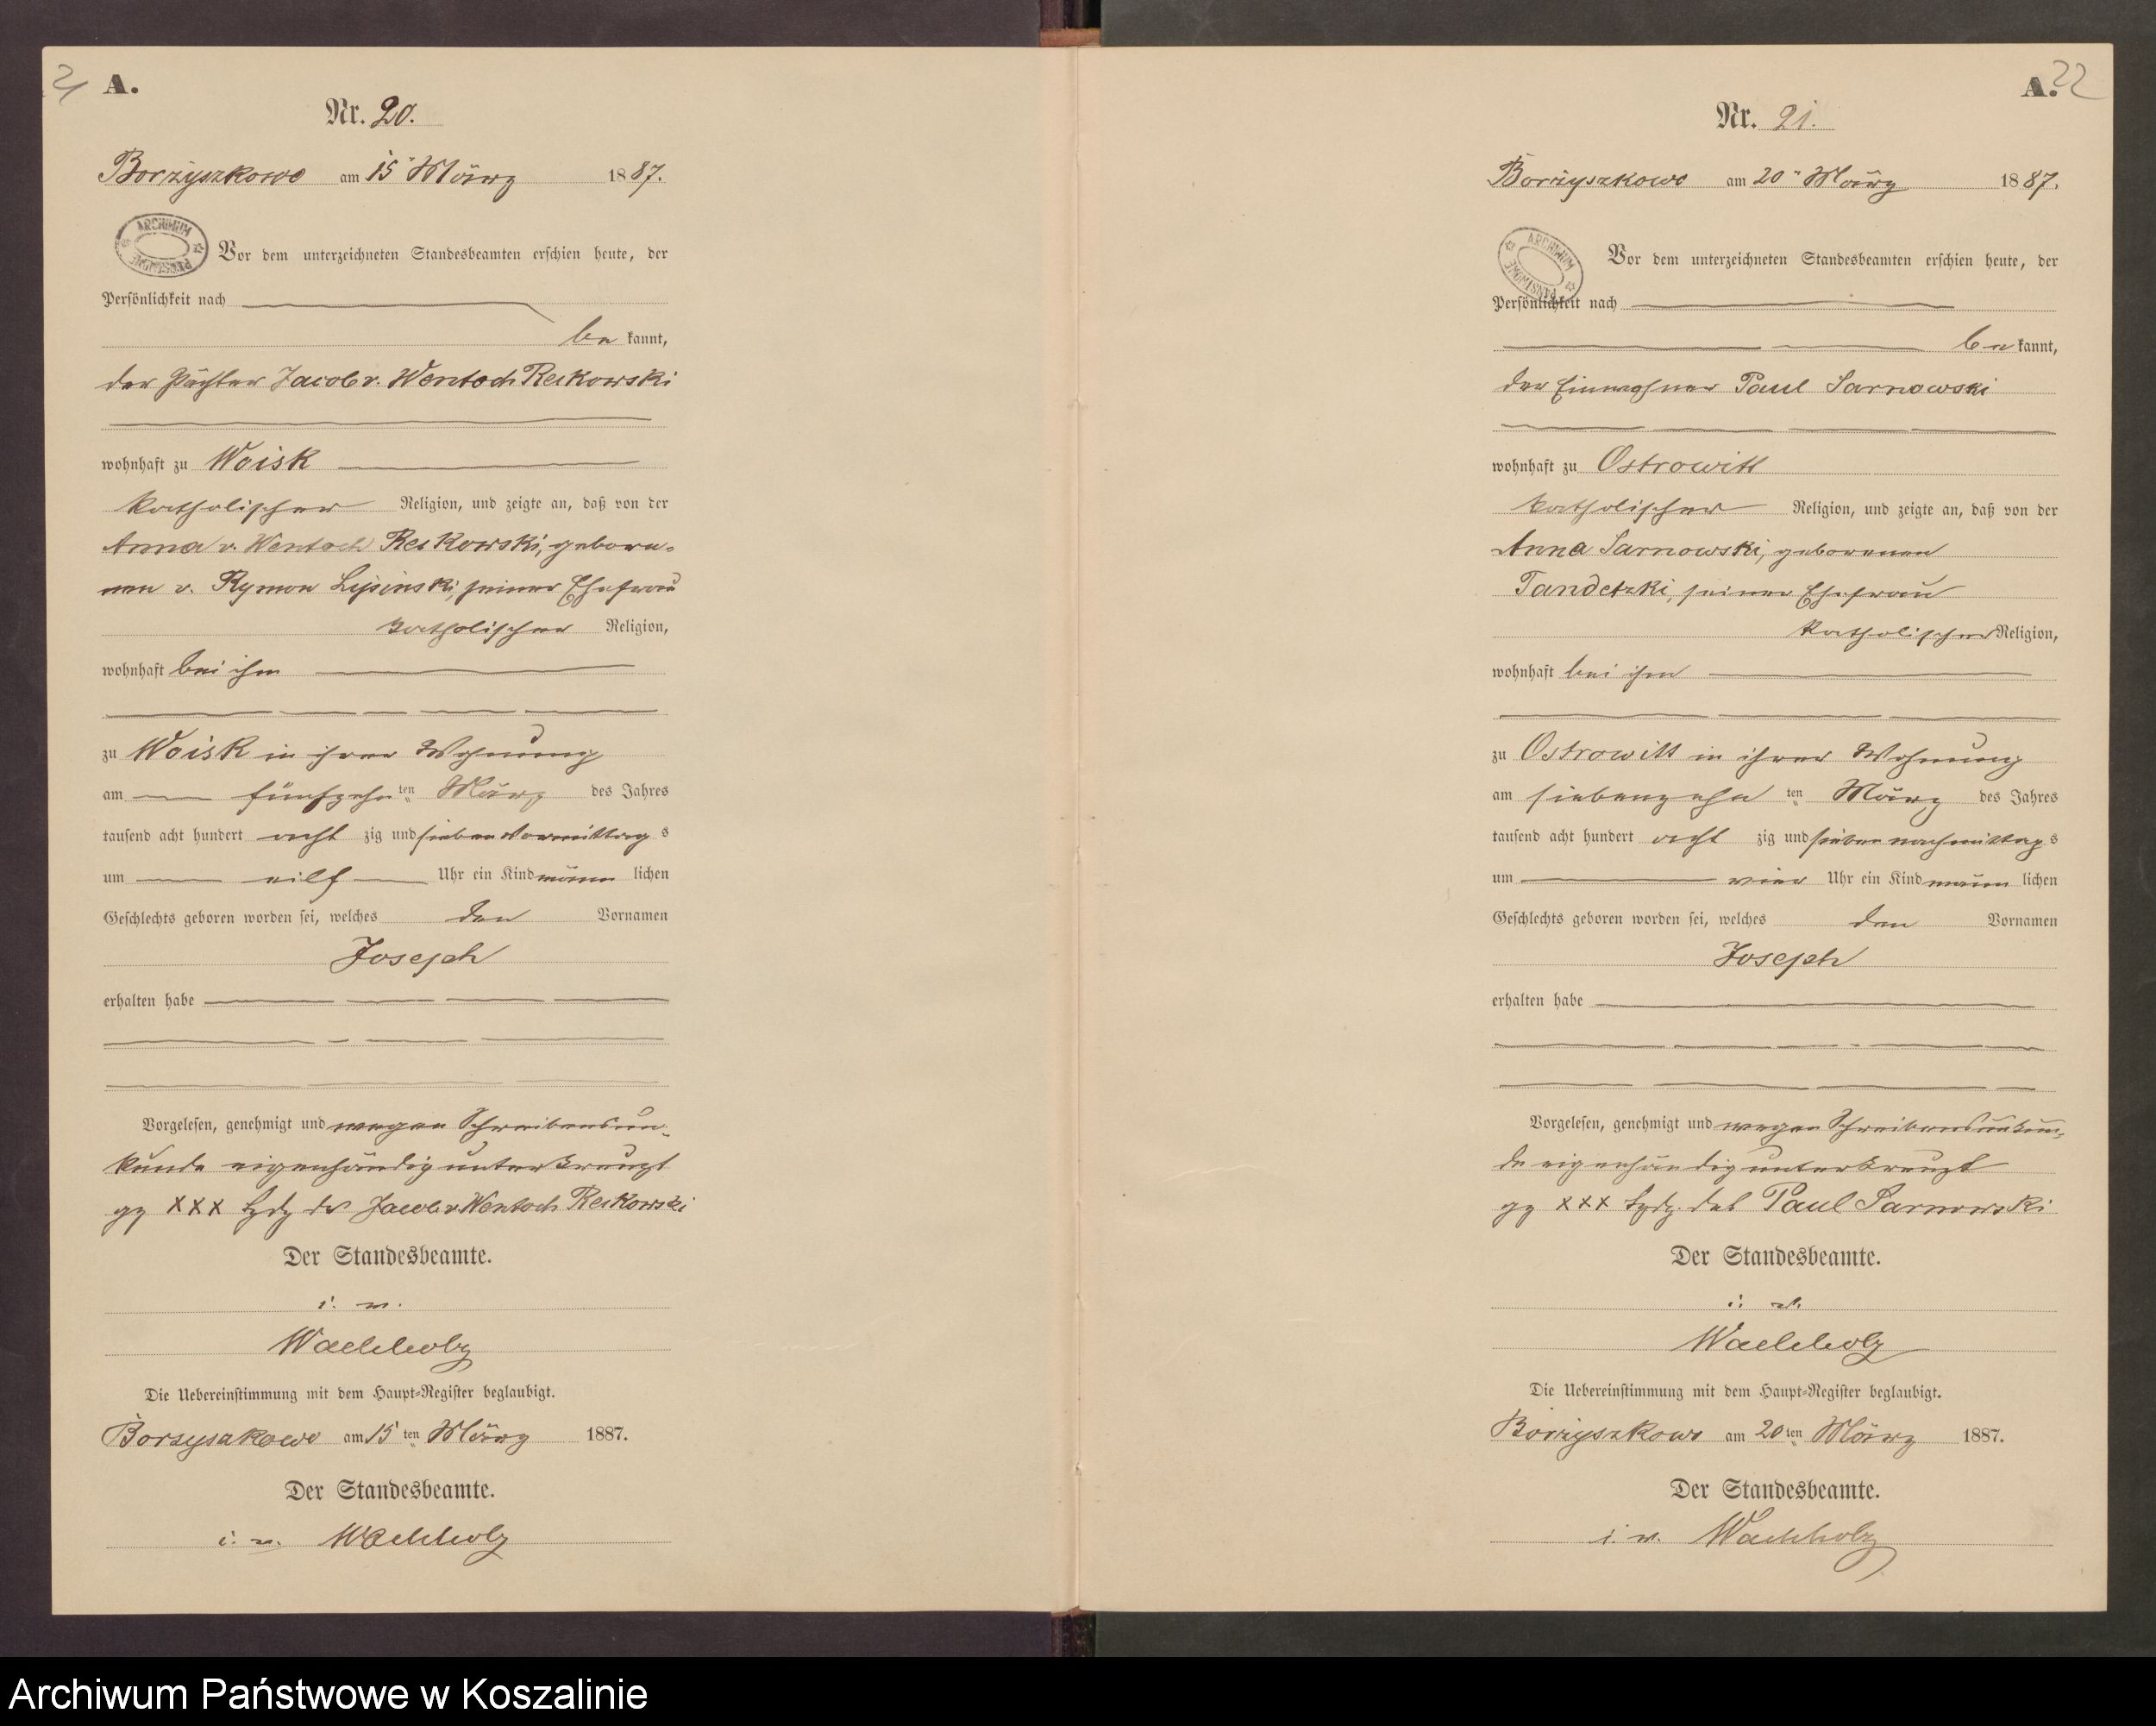 21 A.
Nr. 20.
Borzyszkowo am 15ten März 1887.
ARCHIWUM PAŃSTWOWE
Vor dem unterzeichneten Standesbeamten erschien heute, der
Persönlichkeit nach
be kannt,
der Pächter Jacob v. Wentoch Reikowski
wohnhaft zu Woisk
katholischer Religion, und zeigte an, daß von der
Anna v. Wentoch Reikowski, gebore-
nen v. Rymon Lipinski, seiner Ehefrau
katholischer Religion,
wohnhaft bei ihm
zu Woisk in ihrer Wohnung
am fünfzehn ten März des Jahres
tausend acht hundert acht zig und sieben Vormittag s
um eilf Uhr ein Kind männ lichen
Geschlechts geboren worden sei, welches den Vornamen
Joseph
erhalten habe
Vorgelesen, genehmigt und wegen Schreibensun-
kunde eigenhändig unterkreuzt
gz XXX Hzdg des Jacob v Wentoch Reikowski
Der Standesbeamte.
i. v.
Wachholz
Die Uebereinstimmung mit dem Haupt-Register beglaubigt.
Borzyszkowo am 15 ten März 1887.
Der Standesbeamte.
i. v. Wachholz
A. 22
Nr. 21.
Borzyszkowo am 20ten März 1887.
ARCHIWUM PAŃSTWOWE
Vor dem unterzeichneten Standesbeamten erschien heute, der
Persönlichkeit nach
be kannt,
der Einwohner Paul Sarnowski
wohnhaft zu Ostrowitt
katholischer Religion, und zeigte an, daß von der
Anna Sarnowski, geborenen
Tandetzki, seiner Ehefrau
katholischer Religion,
wohnhaft bei ihm
zu Ostrowitt in ihrer Wohnung
am siebenzehn ten März des Jahres
tausend acht hundert acht zig und sieben nachmittag s
um vier Uhr ein Kind männ lichen
Geschlechts geboren worden sei, welches den Vornamen
Joseph
erhalten habe
Vorgelesen, genehmigt und wegen Schreibensunkun-
de eigenhändig unterkreuzt
gz XXX Hzdg. des Paul Sarnowski
Der Standesbeamte.
i. v.
Wachholz
Die Uebereinstimmung mit dem Haupt-Register beglaubigt.
Borzyszkowo am 20 ten März 1887.
Der Standesbeamte.
i. v. Wachholz
Archiwum Państwowe w Koszalinie